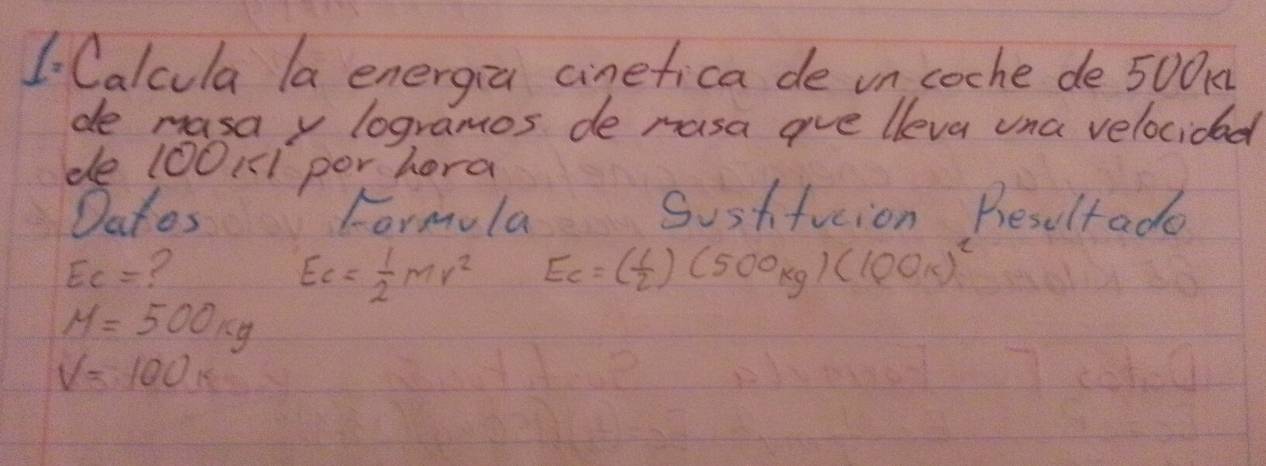 1= Calcula la energia cinetica de un coche de 500KL
de masa y logramos de masa que lleva una velocidad
de 100 Kl por hora
Datos Formula Sustitucion Resultado
Ec = ? Ec = 1/2 mv² Ec = (1/2) (500kg) (100K)²
M = 500kg
V = 100K